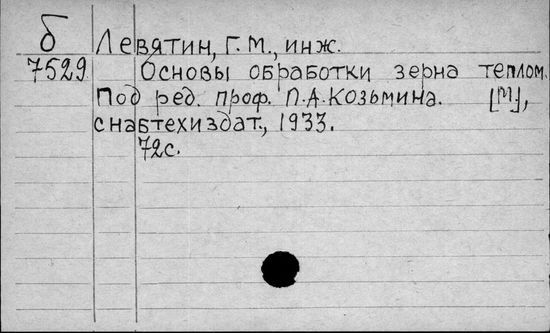 б Левятин, Г.М., инж.
7529 Основы обработки зерна теплом.
Под ред. проф. П.А.Козьмина. [М],
снабтехиздат., 1933.
72с.